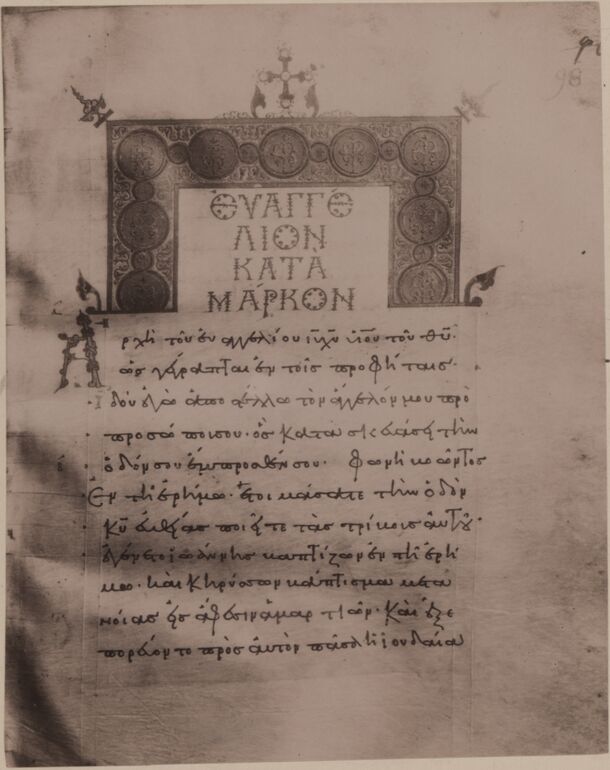 98
ΕΥΑΓΓΕ
ΛΙΟΝ
ΚΑΤΑ
ΜΑΡΚΟΝ
Ἀρχὴ τοῦ εὐαγγελίου ἰῦ χῦ υἱοῦ τοῦ θῦ·
ὡς γέγραπται ἐν τοῖς προφήταις·
ἰδοὺ ἐγὼ ἀποστέλλω τὸν ἄγγελόν μου πρὸ
προσώπου σου· ὃς κατασκευάσει τὴν
ὁδόν σου ἔμπροσθέν σου· φωνὴ βοῶντος
ἐν τῇ ἐρήμω· ἑτοιμάσατε τὴν ὁδὸν
κῦ εὐθείας ποιεῖτε τὰς τρίβους αὐτοῦ·
ἐγένετο ἰωάννης βαπτίζων ἐν τῇ ἐρή
μω· καὶ κηρύσσων βάπτισμα μετα
νοίας εἰς ἄφεσιν ἁμαρτιῶν· καὶ ἐξε
πορεύοντο πρὸς αὐτὸν πᾶσα ἡ ἰουδαία